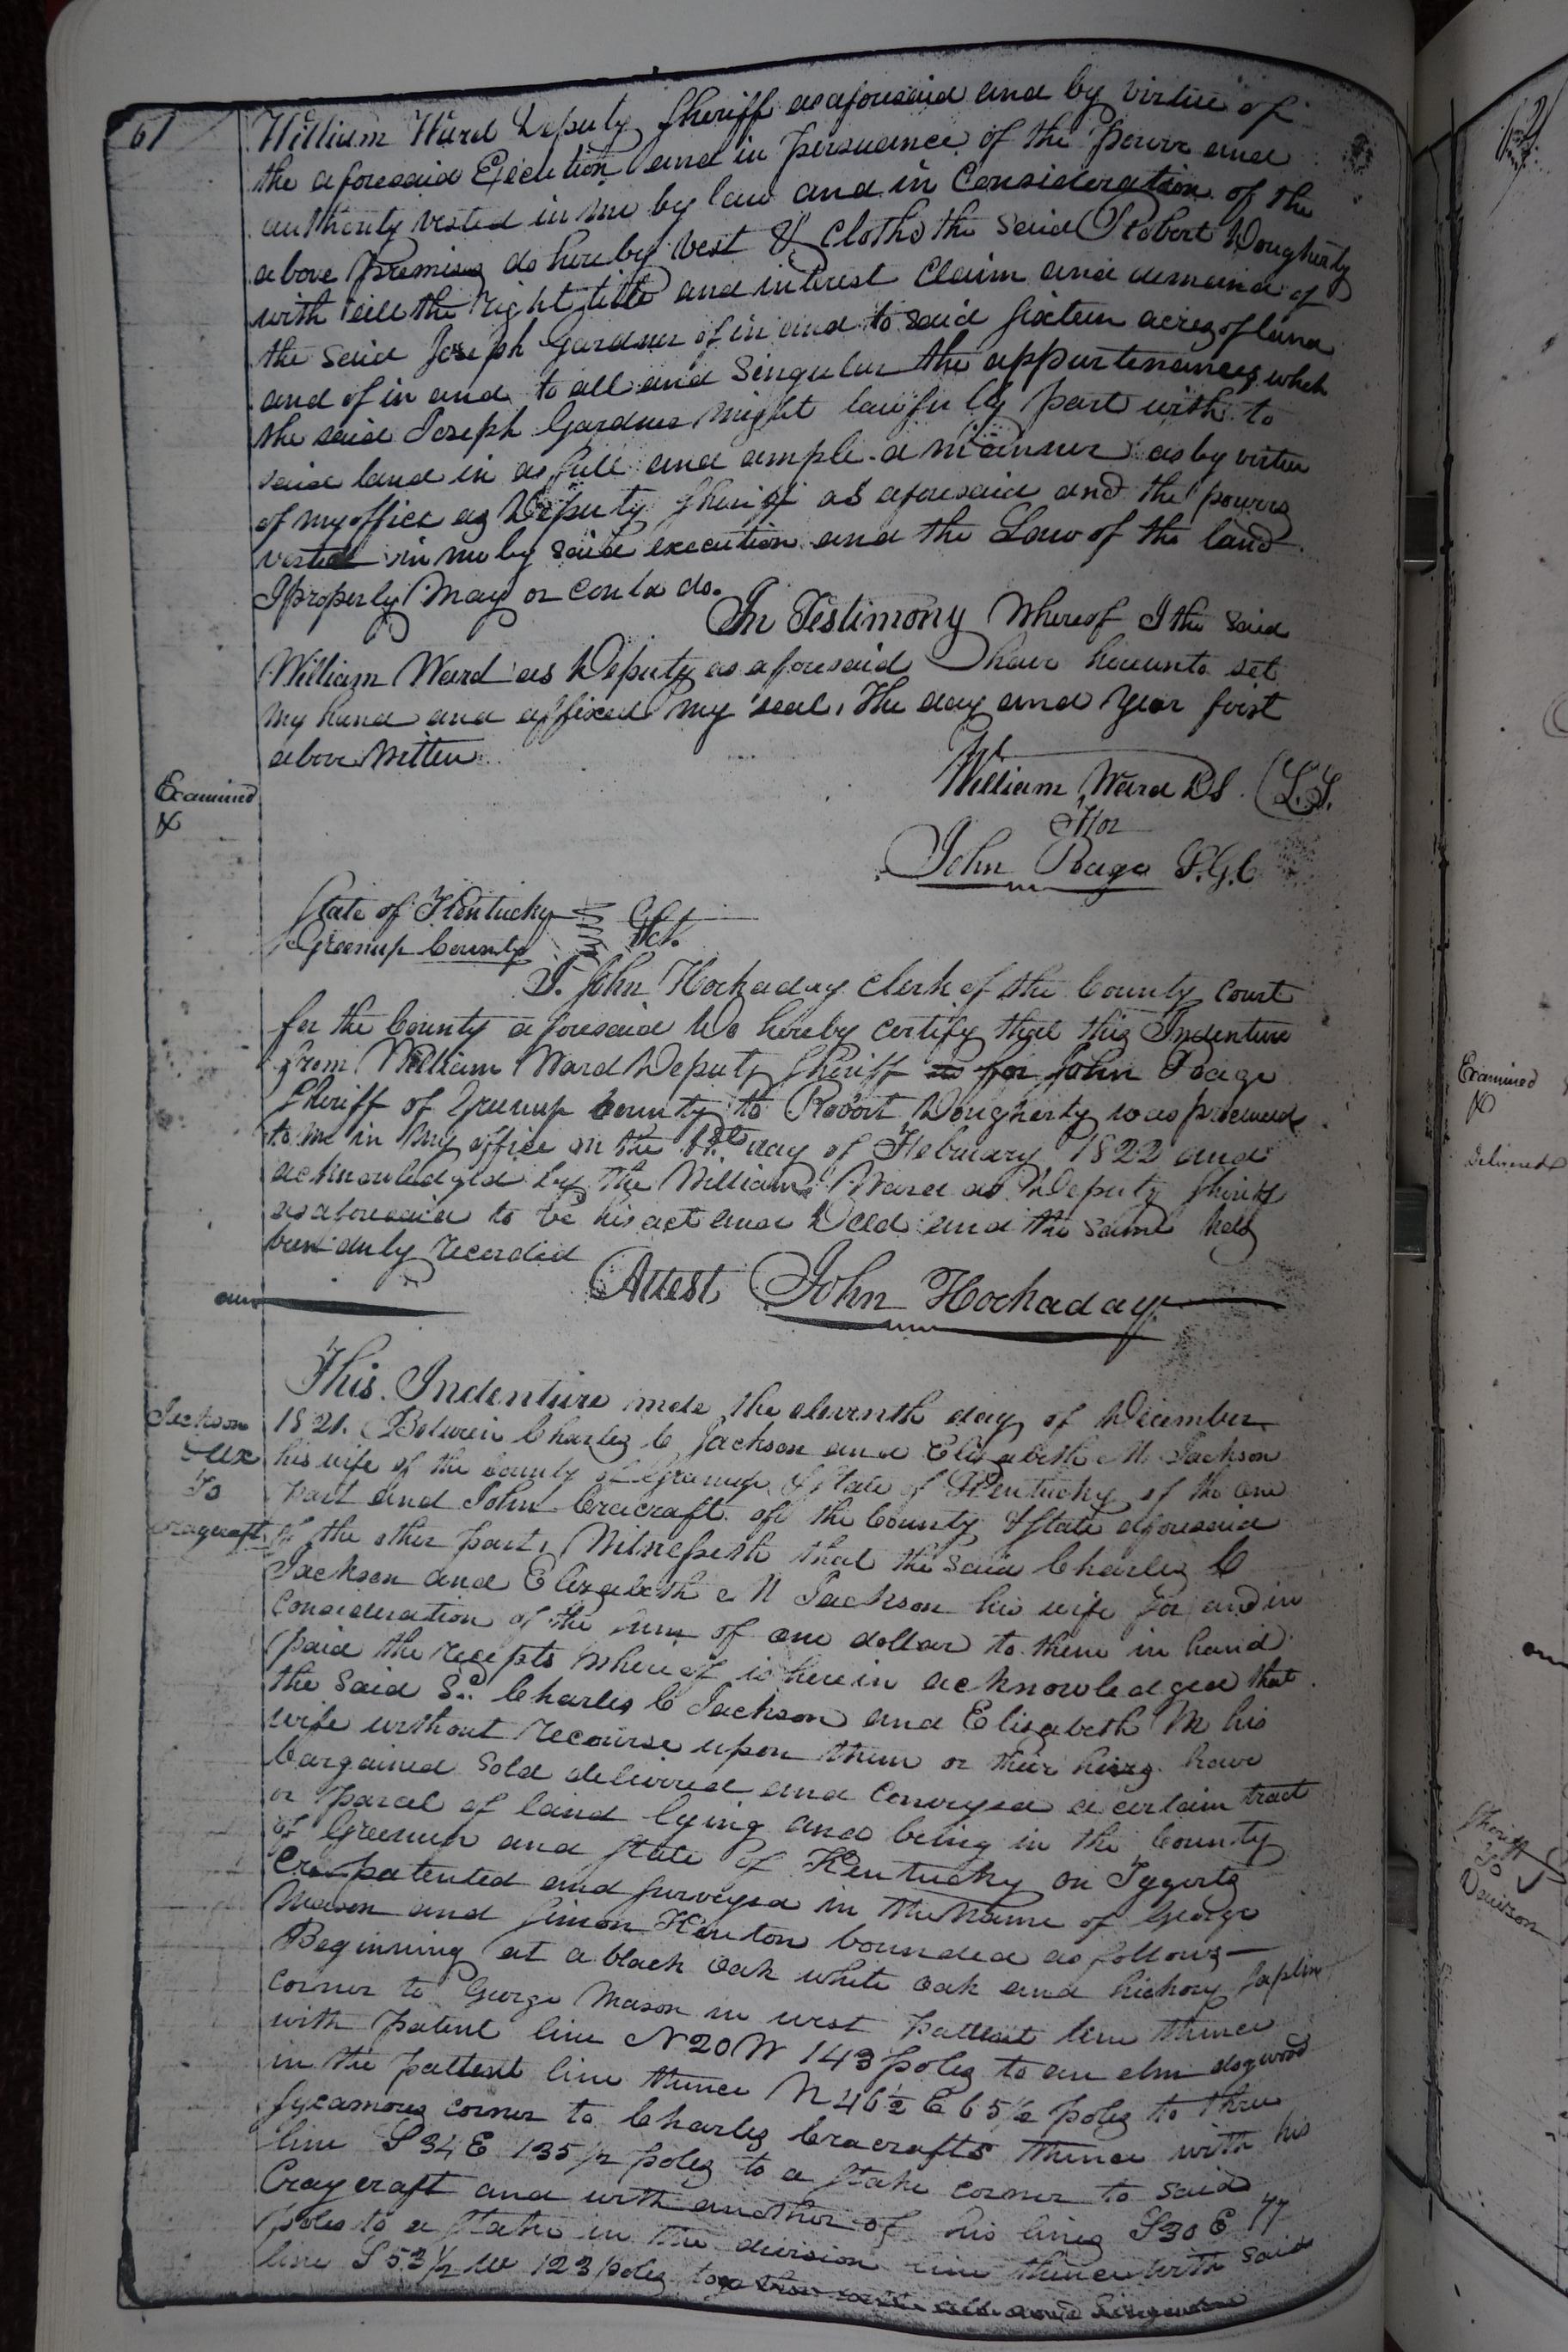 61
William Ward Deputy Sheriff as aforesaid and by virtue of
the aforesaid Execution and in persuance of the power and
authority vested in me by law and in Consideration of the
above premises do hereby vest & clothe the said Robert Dougherty
with all the right title and interest Claim and demand of
the said Joseph Gardner of in and to said sixteen acres of land
and of in and to all and Singular the appurtenances which
the said Joseph Gardner might lawfully part with to
said land in as full and ample a manner as by virtue
of my office as Deputy Sheriff as aforesaid and the powers
vested in me by said execution and the Law of the land
I properly may or could do.
In Testimony Whereof I the said
William Ward as Deputy as aforesaid have hereunto set
my hand and affixed my seal, the day and year first
above Written
William Ward DS. (L.S.
For
John Poage S.G.C
Examined
State of Kentucky
Greenup County Sct.
I. John Hockaday Clerk of the County Court
for the County aforesaid Do hereby certify that this Indenture
from William Ward Deputy Sheriff for John Poage
Sheriff of Greenup County to Robert Dougherty was produced
to me in my office on the day of February 1822 and
acknowledged by the William Ward as Deputy Sheriff
as aforesaid to be his act and Deed and the same has
been duly recorded
Attest John Hockaday
This Indenture made the eleventh day of December
Jackson
&ux
To
Cragcraft
1821. Between Charles C Jackson and Elizabeth M Jackson
his wife of the County of Greenup & State of Kentucky of the one
part and John Cracraft of the County & State aforesaid
of the other part, Witnesseth that the said Charles C
Jackson and Elizabeth M Jackson his wife for and in
Consideration of the sum of one dollar to them in hand
paid the recepts whereof is herein acknowledged that
the said Charles C Jackson and Elizabeth M his
wife without recourse upon them or their heirs have
bargained Sold delivered and Conveyed a certain tract
or parcel of land lying and being in the County
of Greenup and State of Kentucky on Tygerts
Cre patented and surveyed in the name of George
Mason and Simon Kenton bounded as follows
Beginning at a black oak white oak and hickory saplin
corner to George Mason in west pattent line thence
with patent line N 20 W 143 poles to an elm dogwood
in the pattent line thence N 46½ E 65½ poles to three
Sycamores corner to Charles Cracrafts thence with his
line S 34 E 135½ poles to a stake corner to said
Craycraft and with another of his lines S 30 E 77
poles to a stake in the division line thence with said
line S 53½ W 123 poles
Examined
Delivered
Sheriff
To
Davison